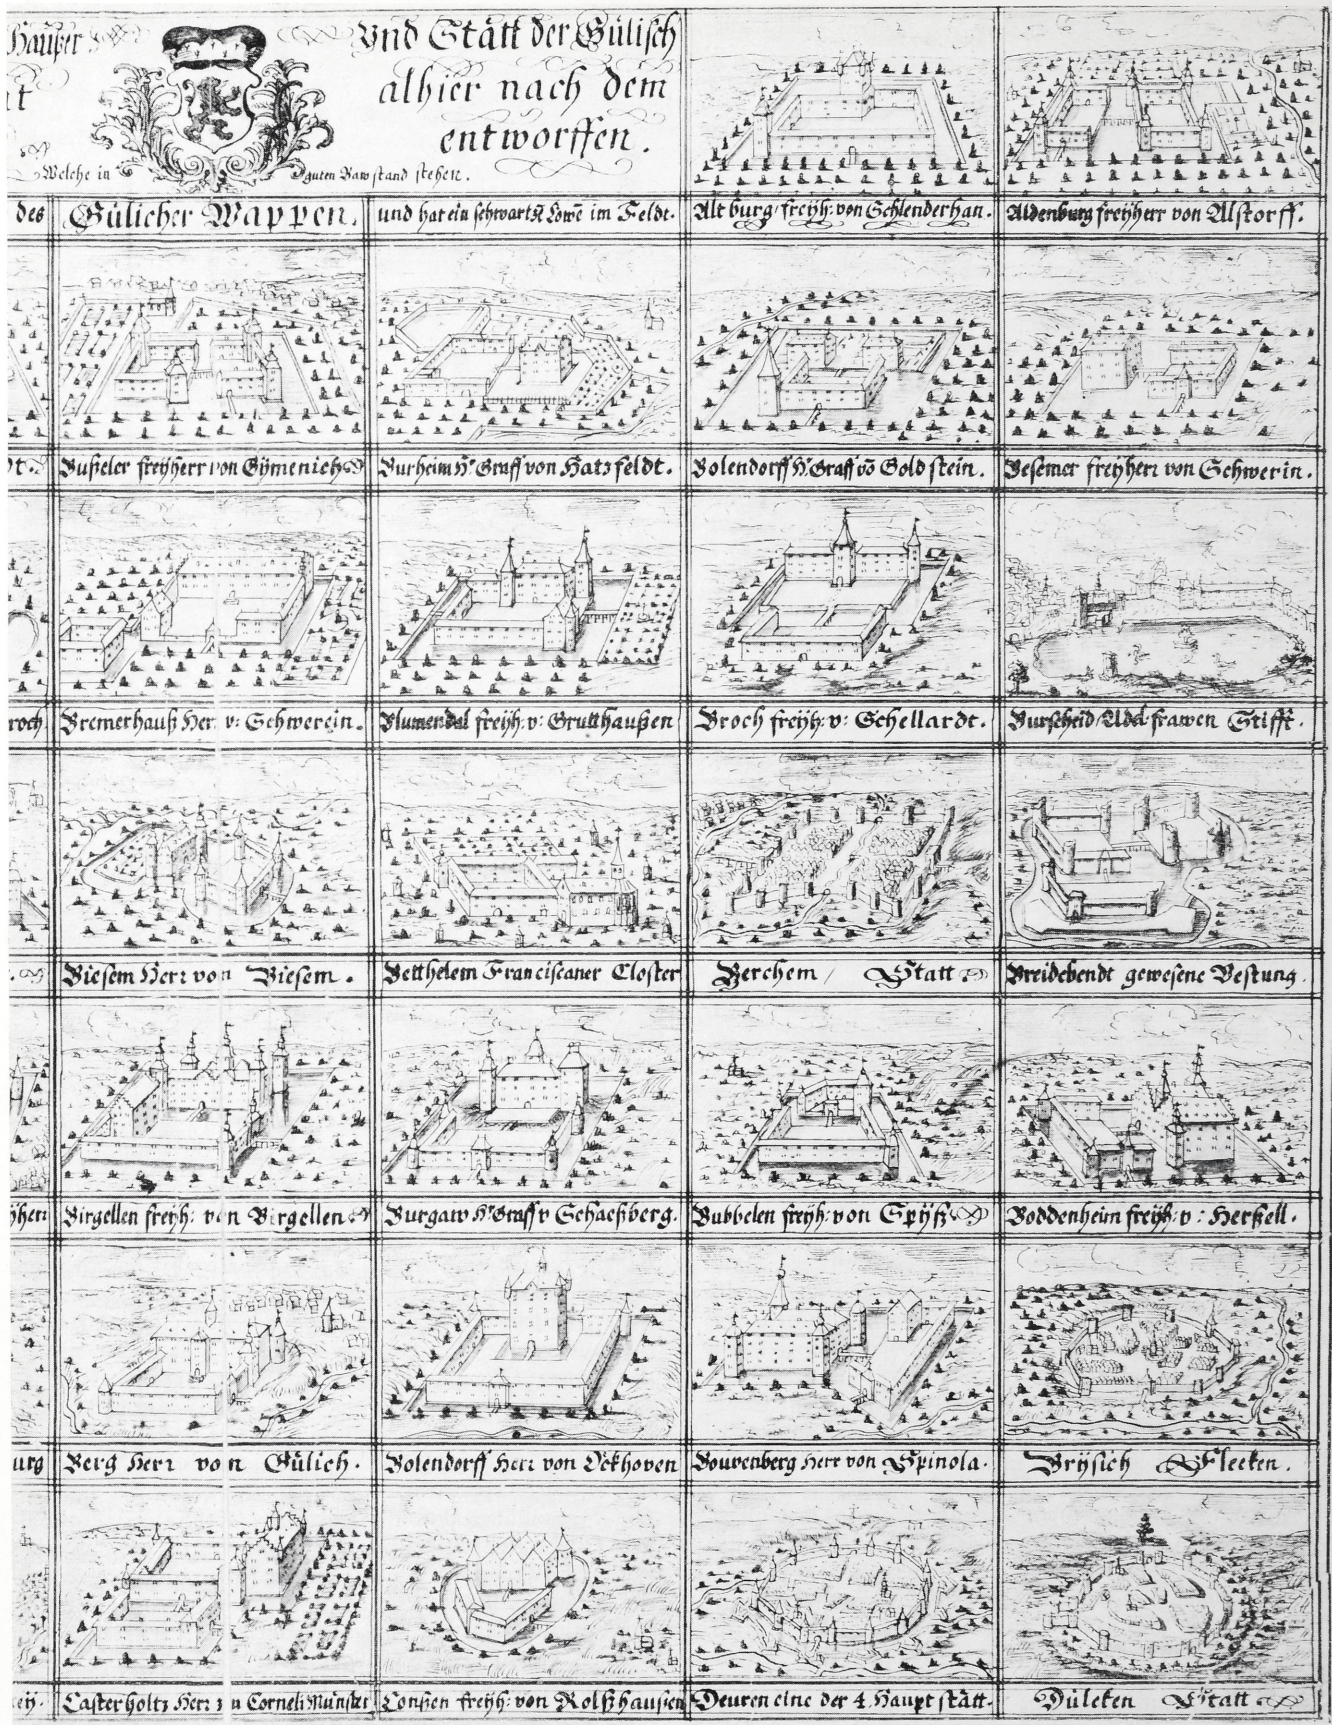 Häußer Vnd Stätt der Gülisch
alhier nach dem
entworffen.
Welche in guten Baw stand stehen.
des Gülicher Wappen. und hat ein schwartze Löwe im Feldt. Altburg freÿh: von Schlenderhan. Aldenburg freÿherr von Alstorff.
Bußeler freÿherr von Gÿmenich Burheim Hr Graff von Hatzfeldt. Bolendorff Hr Graff vō Goldstein. Besemer freÿherr von Schwerin.
Bremerhauß Her v: Schwerein. Blumendal freÿh: v: Grutthaußen Broch freÿh: v: Schellardt. Burscheid Adel frawen Stifft.
Biesem Herr von Biesem. Betthelem Franciscaner Closter Berchem / Statt Breidebendt gewesene Vestung.
Birgellen freÿh: von Birgellen Burgaw Hr Graff v Schaeßberg. Bubbelen freÿh: von Spÿß Boddenheim freÿh: v: Herßell.
Berg Herr von Gülich. Bolendorff Herr von Ockhoven Bouvenberg Herr von Spinola. Brÿsich Flecken.
Casterholtz Herr von Corneli Münster Conßen freÿh: von Rolßhausen Deuren eine der 4. Haupt stätt. Dülcken Statt